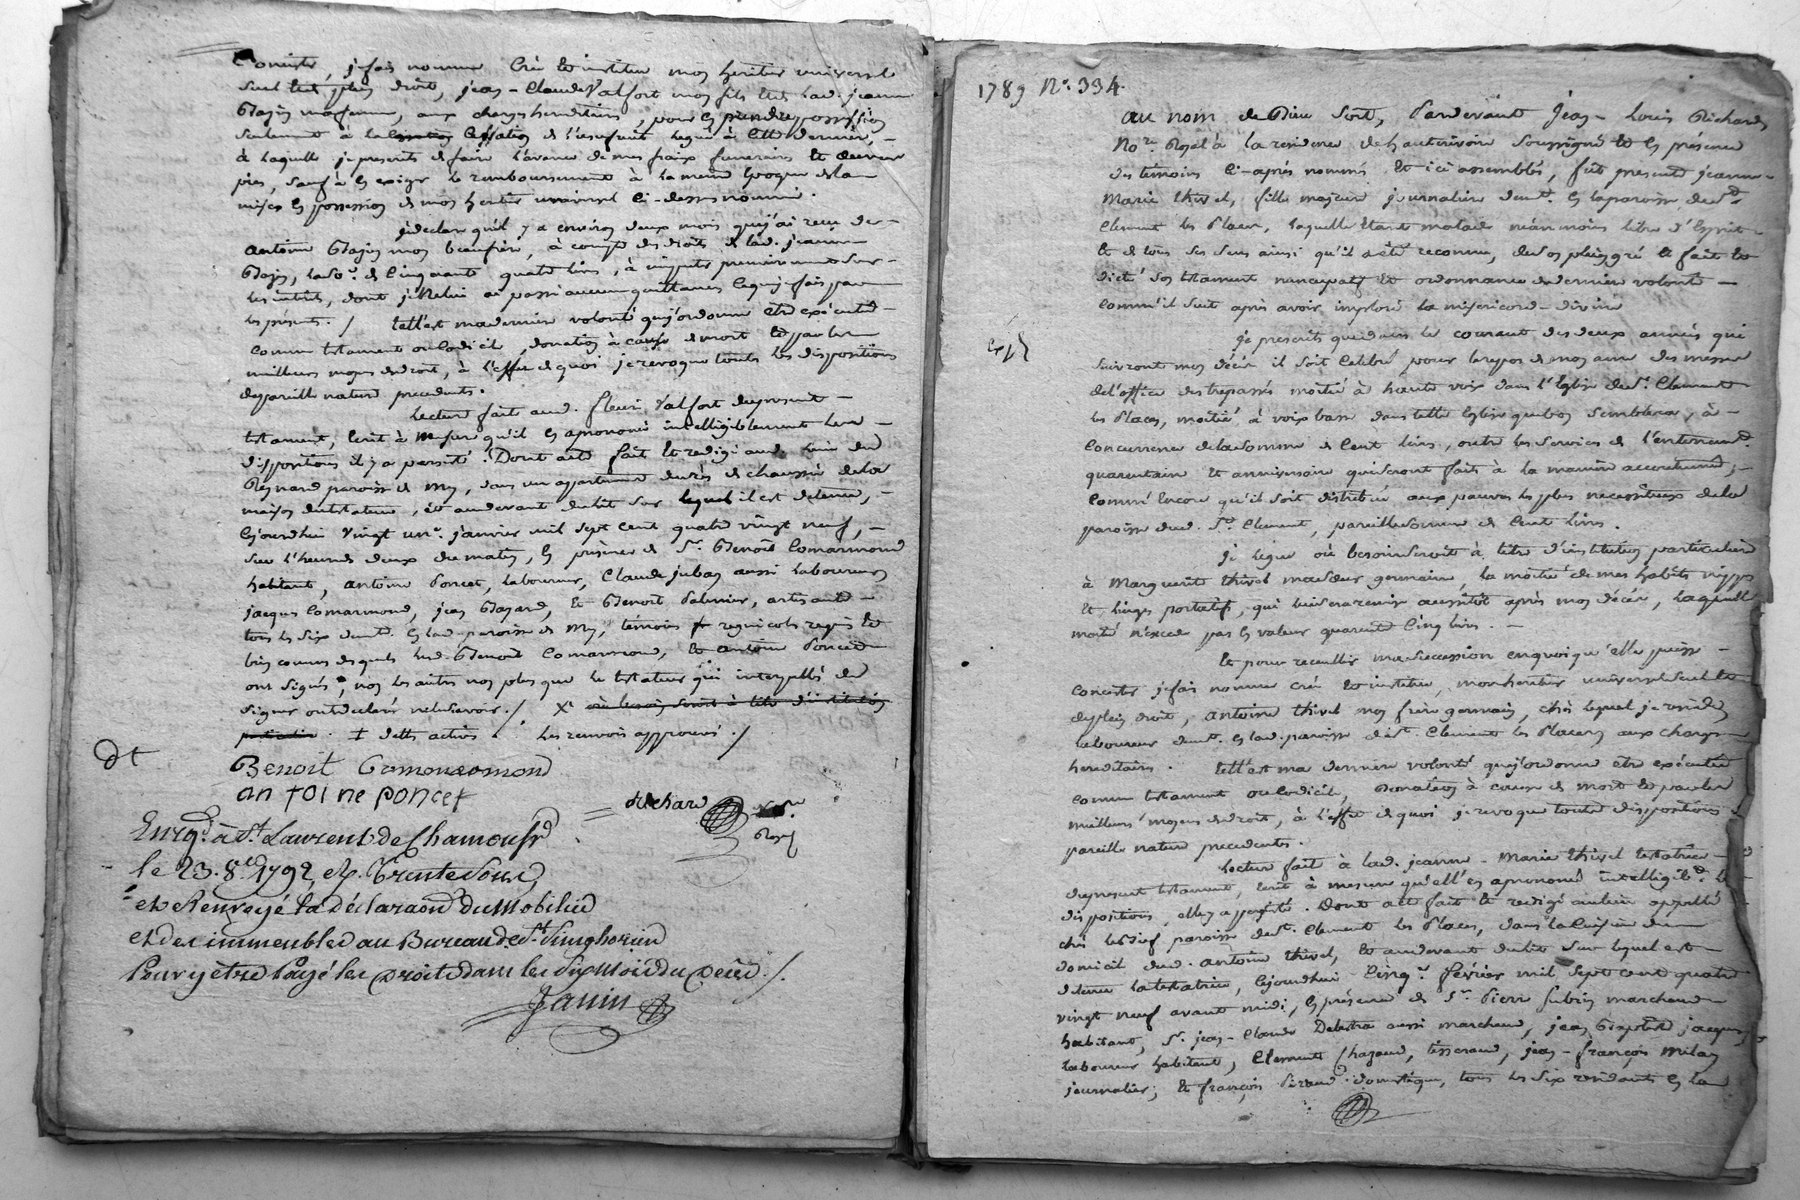 Consister, je fais nomme Crée et institue mon heritier universel
seul et de plein droit, jean-Claude Valfort mon fils et de lad. jeanne
aux charges hereditaires, pour en prendre possession
seulement à la Cessation de l'usufruit legué à cette derniere,
à laquelle je prescrits de faire l'avance de mes fraix funeraires et œuvres
pies, sauf à en exiger le remboursement à la meme Epoque de la
mise en possession de mon heritier universel ci-dessus nommé.
je declare qu'il y a environ deux mois que j'ai reçu de
antoine mon beaufrere, à compte des droits de lad. jeanne
la so.e de Cinquante quatre livres, à imputer premierement sur
les interets, dont je ne lui ai passé aucune quittance ce que je fais par
les présentes. / telle est ma derniere volonté que j'ordonne etre exécutée
comme testament ou codicile, donation à cause de mort et par les
meilleurs moyens de droit, à l'effet de quoi je revoque toutes les dispositions
de pareille nature precedentes.
Lecture faite aud. fleuri Valfort du present
testament, Ecrit à mesure qu'il en a prononcé intelligiblement les
dispositions il y a persisté. Dont acte fait et redigé aud. lieu de
paroisse de my, dans un appartement du rès de chaussée de la
maison du testateur, et au devant du lit sur lequel il est detenu,
Cejourdhui vingt un.e janvier mil sept cent quatre vingt neuf,
sur l'heure de deux du matin, en présence de S.r Benoit Comarmond
habitant, antoine Poncet, laboureur, Claude juban aussi laboureur
jacques Comarmond, jean Bazard, et Benoit Palmier, artisants
tous les six dem.ts en lad. paroisse de my, témoins regnicoles requis et
bien connus desquels lesd. Benoit Comarmond, et antoine Poncet
ont signés, non les autres non plus que le testateur qui interpellés de
signer ont declaré ne le savoir. / X.e ou besoin seroit à titre d'institution
particuliere. ‡ dettes actives. Les renvois approuvés /
Benoit Comoucomond
an toine poncet
Richard
dt
Enrg.é à St. Laurent de Chamousset
le 23. 8.e 1792, et trente sous,
et Renvoyé la déclaraon du Mobilier
et des immeubles au Bureau de St. Simphorien
Pour y être Payé les Droits dans les Six Mois du Décès. /.
Janin
1789 N.o 334.
au nom de Dieu soit, Pardevant Jean-Louis Richard
No.re Royal à la residence de hauterivoire soussigné et en présence
des témoins ci-après nommés et ici assemblés, fut presente jeanne
Marie thivel, fille majeure journaliere dem.t en la paroisse de S.t
Clement les Places, laquelle étant malade néanmoins libre d'Esprit
et de tous ses sens ainsi qu'il a été reconnu, de son plein gré a fait et
dicté son testament nuncupatif et ordonnance de derniere volonté
comm'il suit après avoir imploré la misericorde divine
je prescrits que dans le courant des deux années qui
suivront mon décès il soit Celebré pour le repos de mon ame des messes
de l'office des trepassés moitié à haute voix dans l'Eglise de S.t Clement
les Places, moitié à voix basse dans telle Eglise que bon semblera, à
concurrence de la somme de Cent livres, outre les services de l'enterrement
quarantaine et anniversaire qui seront faits à la maniere accoutumée,
comm'Encore qu'il soit distribué aux pauvres les plus necessiteux de la
paroisse dud. S.t Clement, pareille somme de Cent livres.
exp.
je legue où besoin seroit à titre d'institution particuliere
à Marguerite thivel ma sœur germaine, la moitié de mes habits nippes
et linges portatifs, qui lui sera remise aussitôt après mon décès, laquelle
moitié n'excede pas en valeur quarente Cinq livres.
Et pour recueillir ma succession en quoi qu'elle puisse
consister je fais nomme crée et institue, mon heritier universel seul et
de plein droit, antoine thivel mon frere germain, chès lequel je reside
laboureur dem.t en lad. paroisse de S.t Clement les Places aux charges
hereditaires. telle est ma derniere volonté que j'ordonne etre exécutée
comme testament ou codicile, Donation à cause de mort et par les
meilleurs moyens de droit, à l'effet de quoi je revoque toutes dispositions
pareille nature precedentes.
Lecture faite à lad. jeanne-Marie thivel testatrice
du present testament, écrit à mesure qu'elle en a prononcé intelligib.t les
dispositions, elle y a persisté. Dont acte fait et redigé au lieu appellé
paroisse de S.t Clement les Places, dans la Cuisine du
domicile dud. antoine thivel, et au devant du lit sur lequel est
detenue la testatrice, Cejourdhui Cinq.e fevrier mil sept cent quatre
vingt neuf avant midi, en présence de S.r Pierre Subrin marchand
habitant, S.r jean-Claude Delestra aussi marchand, jean jacques,
laboureur habitant, Clement Chazaud, tisserand, jean-françois Milan
journalier; et françois Peraud domestique, tous les six residants en lad